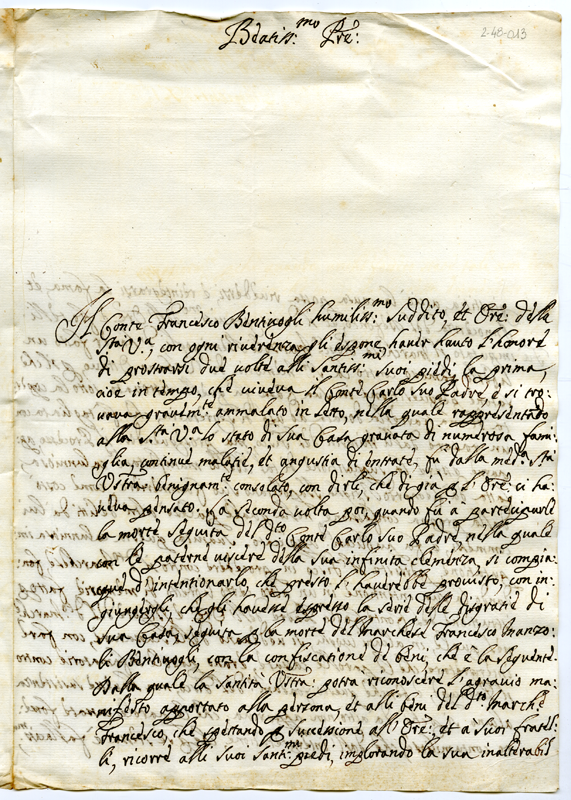 Beatiss:mo Pre:
2-48-013
Il Conte Francesco Bentivogli humiliss:mo suddito, et Ore: della
Sta Va, con ogni riverenza gli espone, haver hauto l'honore
di prostrarsi due volte alli santiss:mi suoi piedi, la prima,
cioè in tempo, che viveva il Conte Carlo suo Padre, e si tro:
vava gravemte ammalato in letto, nella quale rappresentado
alla Sta Va lo stato di sua Casa gravata di numerosa fami
glia, continue malatie, et angustia di entrate, fu dalla meda Sta
Vstra benignamte consolato, con dirli, che di già p l'Ore: ci ha:
veva pensato. La seconda volta poi, quando fu a participarle
la morte seguita del dto Conte Carlo suo Padre, nella quale
con le paterne viscere della sua infinita clemenza, si compia:
cque di intentionarlo, che presto l'haverebbe provisto, con in:
giungerli, che gli havesse espresso la serie delle disgratie di
sua Casa, seguita p la morte del Marchese Francesco Manzo:
li Bentivogli, con la confiscatione de beni, che è la seguente.
Dalla quale la Santità Vstra: potrà riconoscere l'agravio ma:
nifesto, apportato alla persona, et alli beni del dto Marche
Francesco, che spettando p successione all'Ore:, et a suoi fratel:
li, ricorre alli suoi Santmi piedi, implorando la sua inalterabil